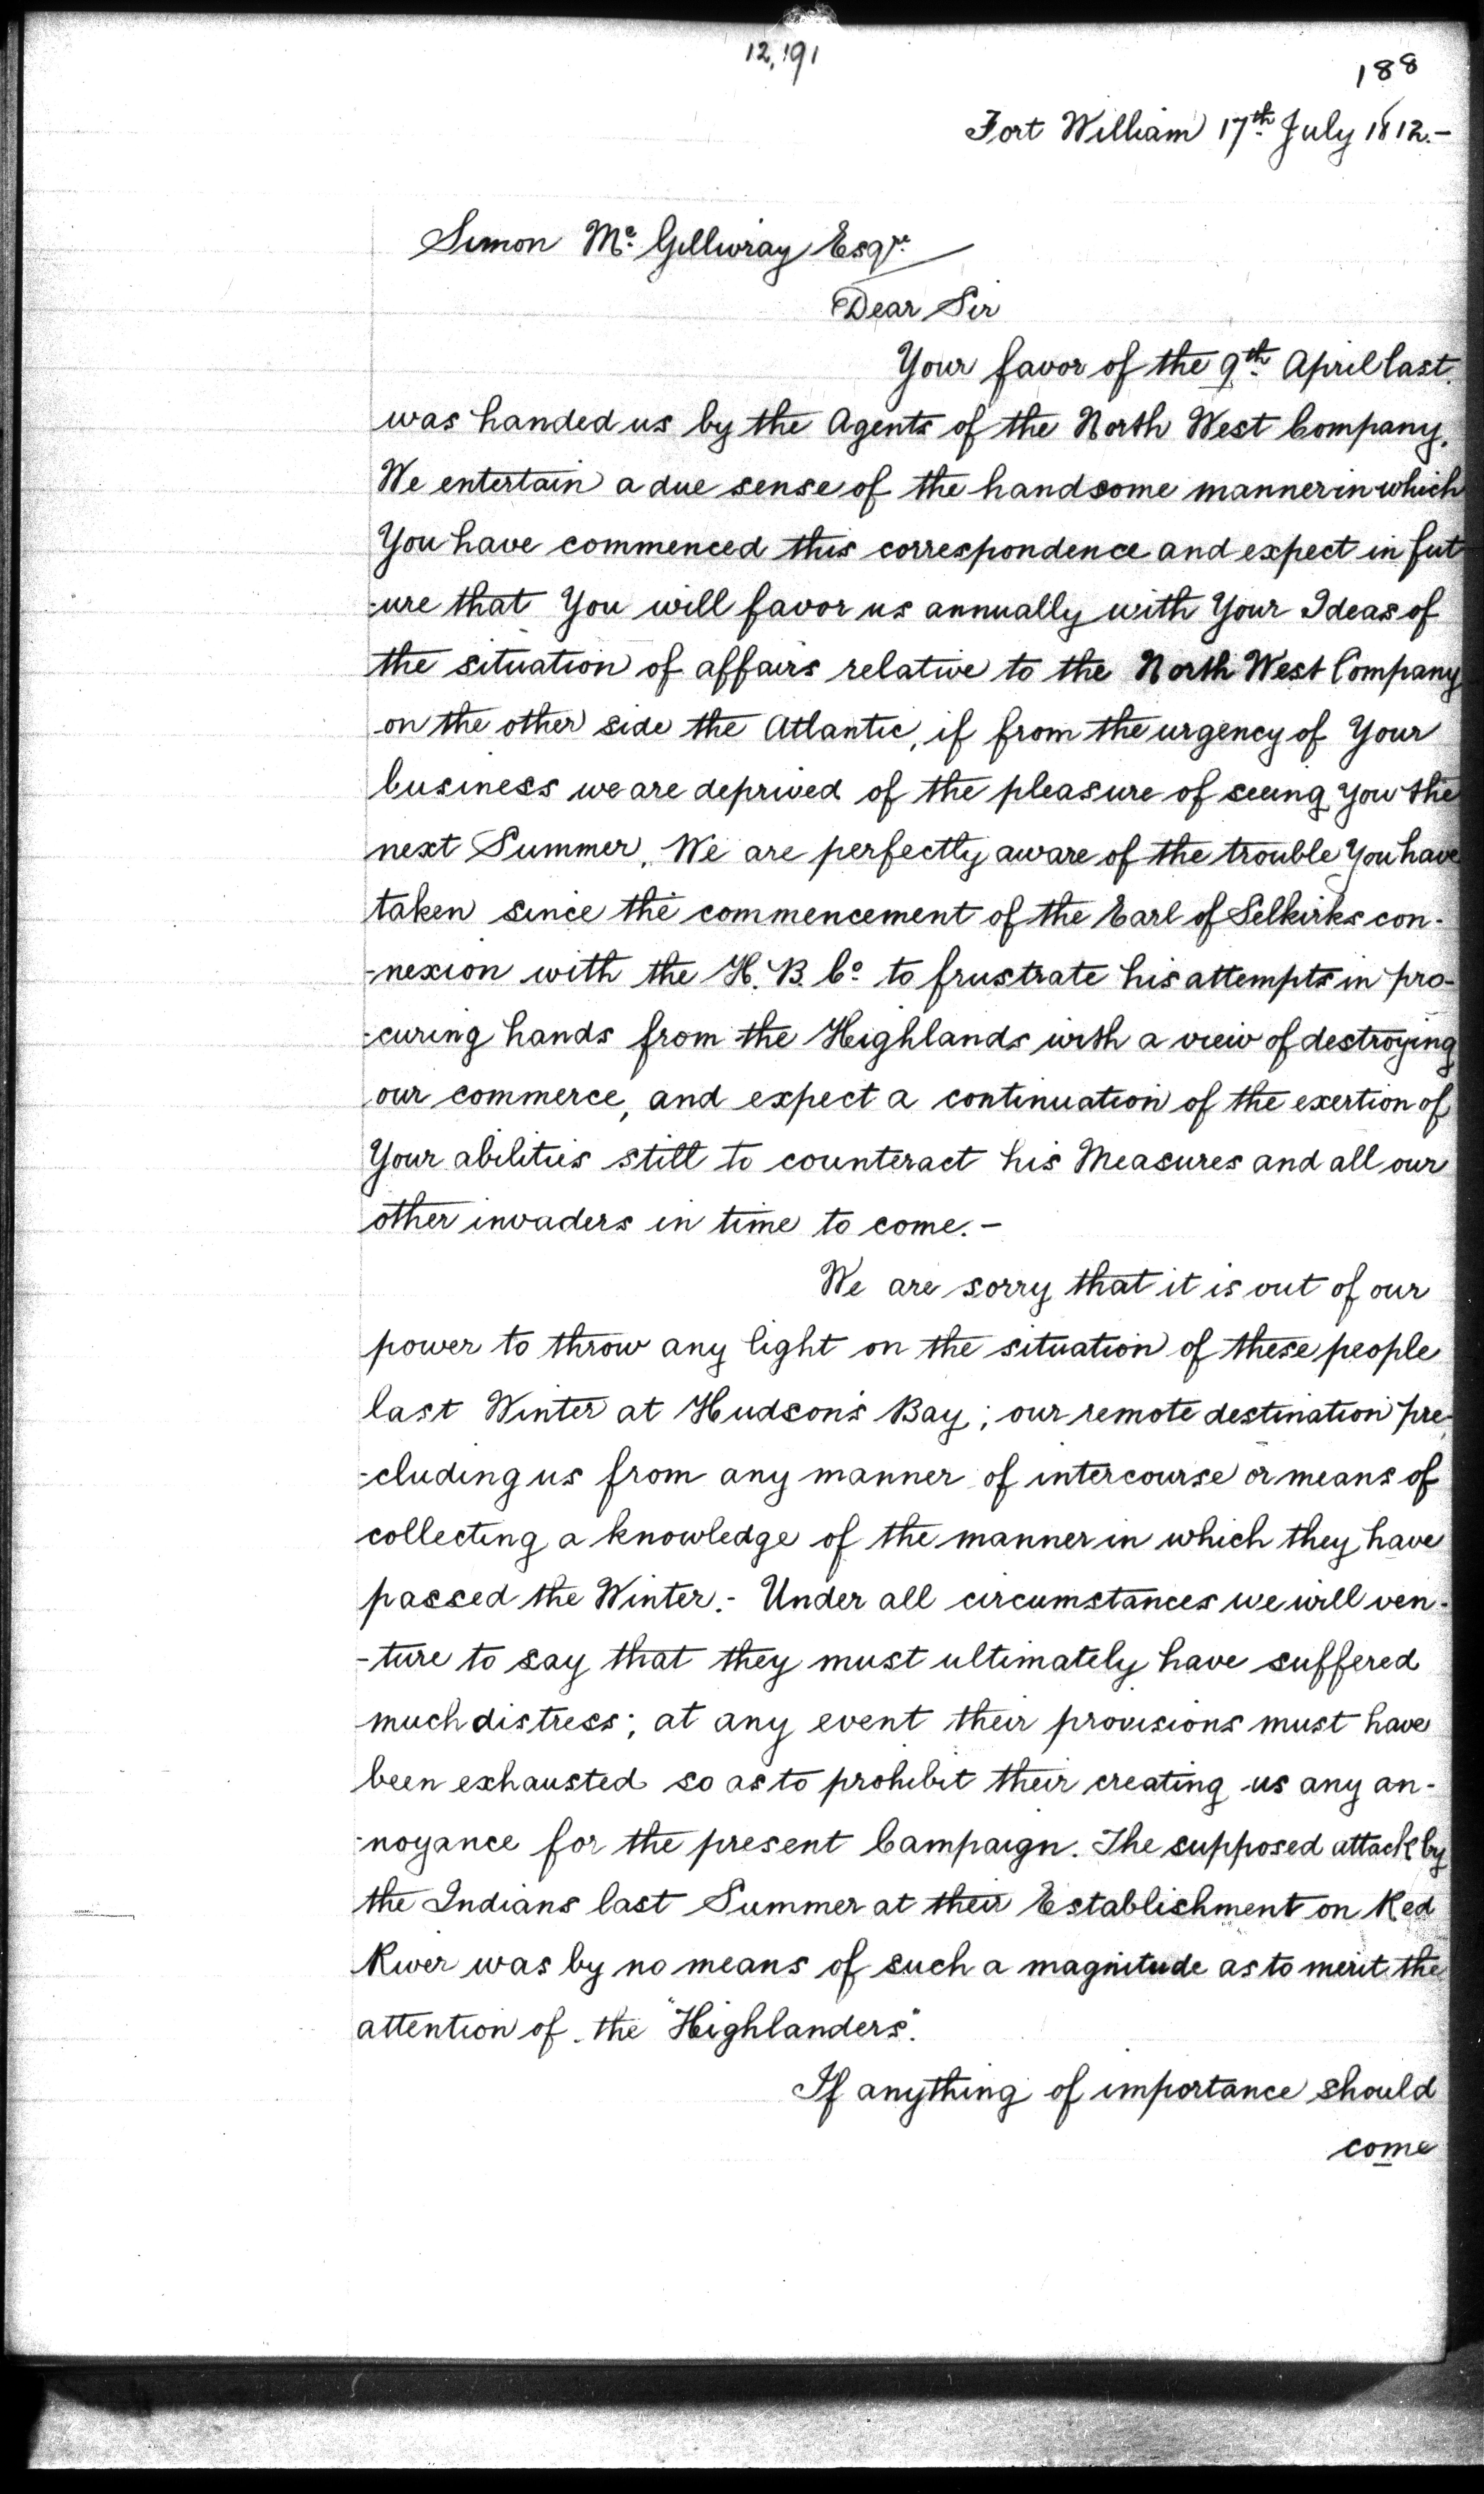 12,191
188
Fort William 17th July 1812.-
Simon Mc Gillivray Esqre
Dear Sir
Your favor of the 9th April last.
was handed us by the Agents of the North West Company.
We entertain a due sense of the handsome manner in which
You have commenced this correspondence and expect in fut
-ure that You will favor us annually with Your Ideas of
the situation of affairs relative to the North West Company
on the other side the Atlantic, if from the urgency of Your
business we are deprived of the pleasure of seeing You the
next Summer. We are perfectly aware of the trouble You have
taken since the commencement of the Earl of Selkirks con-
-nexion with the H. B. Co to frustrate his attempts in pro-
-curing hands from the Highlands with a view of destroying
our commerce, and expect a continuation of the exertion of
Your abilities still to counteract his Measures and all our
other invaders in time to come.-
We are sorry that it is out of our
power to throw any light on the situation of these people
last Winter at Hudson's Bay; our remote destination pre-
-cluding us from any manner of intercourse or means of
collecting a knowledge of the manner in which they have
passed the Winter.- Under all circumstances we will ven-
-ture to say that they must ultimately have suffered
much distress; at any event their provisions must have
been exhausted so as to prohibit their creating us any an-
-noyance for the present Campaign. The supposed attack by
the Indians last Summer at their Establishment on Red
River was by no means of such a magnitude as to merit the
attention of the "Highlanders".
If anything of importance should
come